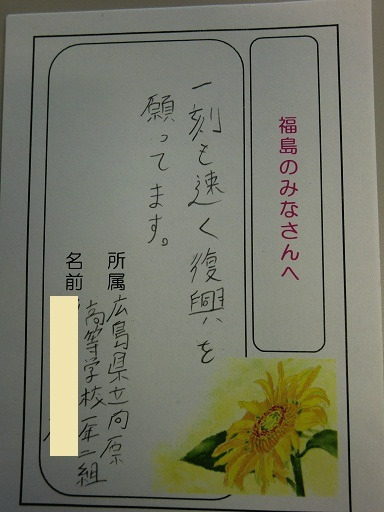 福島のみなさんへ
一刻も速く復興を
願ってます。
所属 広島県立向原
高等学校 年二組
名前